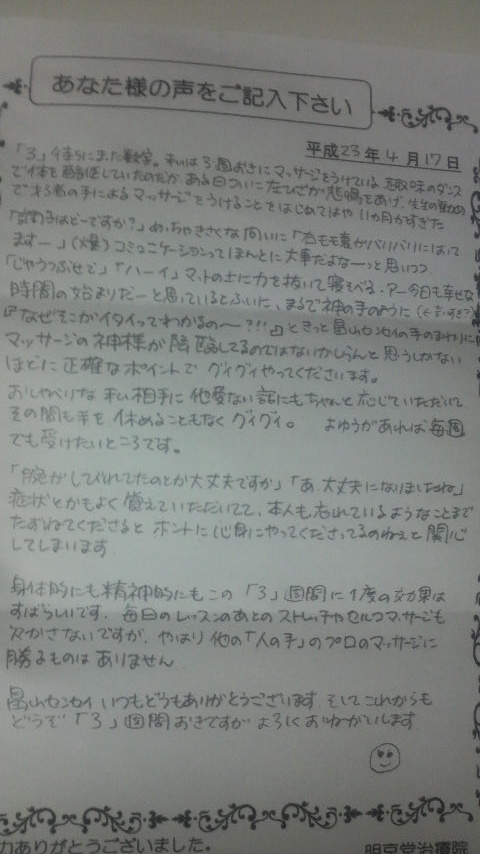 あなた様の声をご記入下さい
平成23年4月17日
「3」待ちにまった数字。私は3週おきにマッサージをうけている 趣味のダンス
で体を酷使していたのだが ある日ついに左ひざが悲鳴をあげ、先生の勧め
で 者の手によるマッサージをうけることをはじめてはや いつか月かすぎた
「調子はどーですか？」めっちゃきさくな問いに「 もも裏がバリバリにはって
ますー」(爆) コミュニケーションってほんとに大事だよなーっと思いつつ
「じゃうつぶせで」「ハーイ」マットの上に力を抜いて寝そべる・アー今日も幸せな
時間の始まりだーと思っているとふいに、まるで神の手のように(←言いすぎ？)
『なぜそこがイタイってわかるの〜?!!』ときっと畠山センセイの手のまわりに
マッサージの神様が降臨してるのではないかしらんと思うしかない
ほどに 正確なポイントで グイグイやってくださいます。
おしゃべりな 私 相手に 他愛ない 話にもちゃんと 応じていただいて
その間も手を 休めることもなく グイグイ。 よゆうがあれば 毎週
でも受けたいところです。
「腕がしびれてたのとか大丈夫ですか」「あ、大丈夫になりましたね」
症状とかもよく覚えていただいてて、本人も忘れているようなことまで
たずねてくださると ホントに 心身にやってくださってるのねぇと 関心
してしまいます
身体的にも精神的にもこの「3」週間に1度の効果は
すばらしいです。毎日のレッスンのあとの ストレッチや セルフマッサージも
欠かさないですが、やはり他の「人の手」のプロのマッサージに
勝るものは ありません
畠山センセイ いつもどうもありがとうございます。そしてこれからも
どうぞ「3」週間おきですが よろしくおねがいします
力ありがとうございました。
明京堂治療院